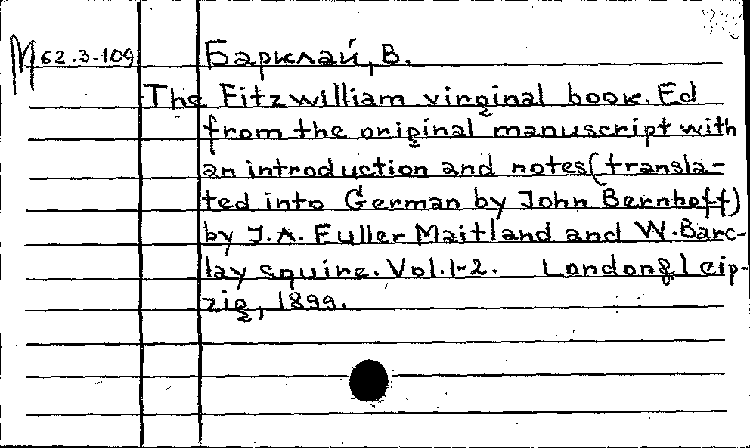 М 62.3-109 Барклай, В.
The Fitzwilliam virginal book. Ed
from the original manuscript with
an introduction and notes (transla-
ted into German by John Bernhoff)
by J.A. Fuller Maitland and W. Barc-
lay squire. Vol. 1-2. London & Leip-
zig, 1899.